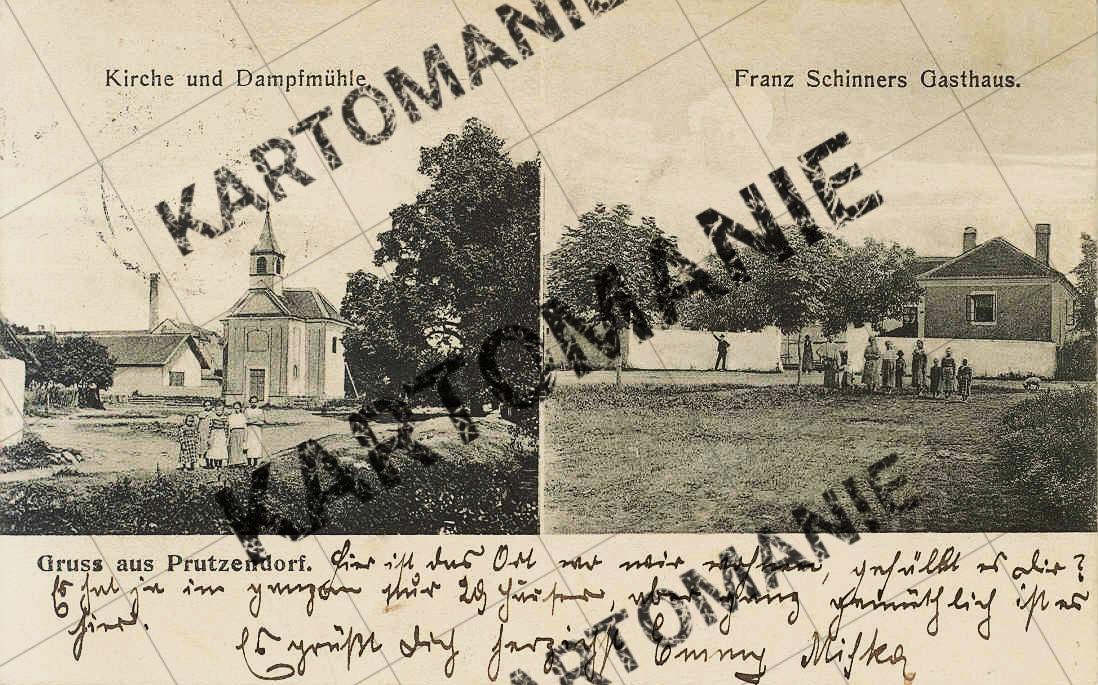 Kirche und Dampfmühle.
Franz Schinners Gasthaus.
KARTOMANIE
KARTOMANIE
KARTOMANIE
KARTOMANIE
Gruss aus Prutzendorf. Hier ist das Ort wo wir wohnen, gefällt es dir?
Es hat ja im ganzen nur 28 Häuser, aber ganz gemüthlich ist es
hier.
Es grüßt dich herzichst Emmy